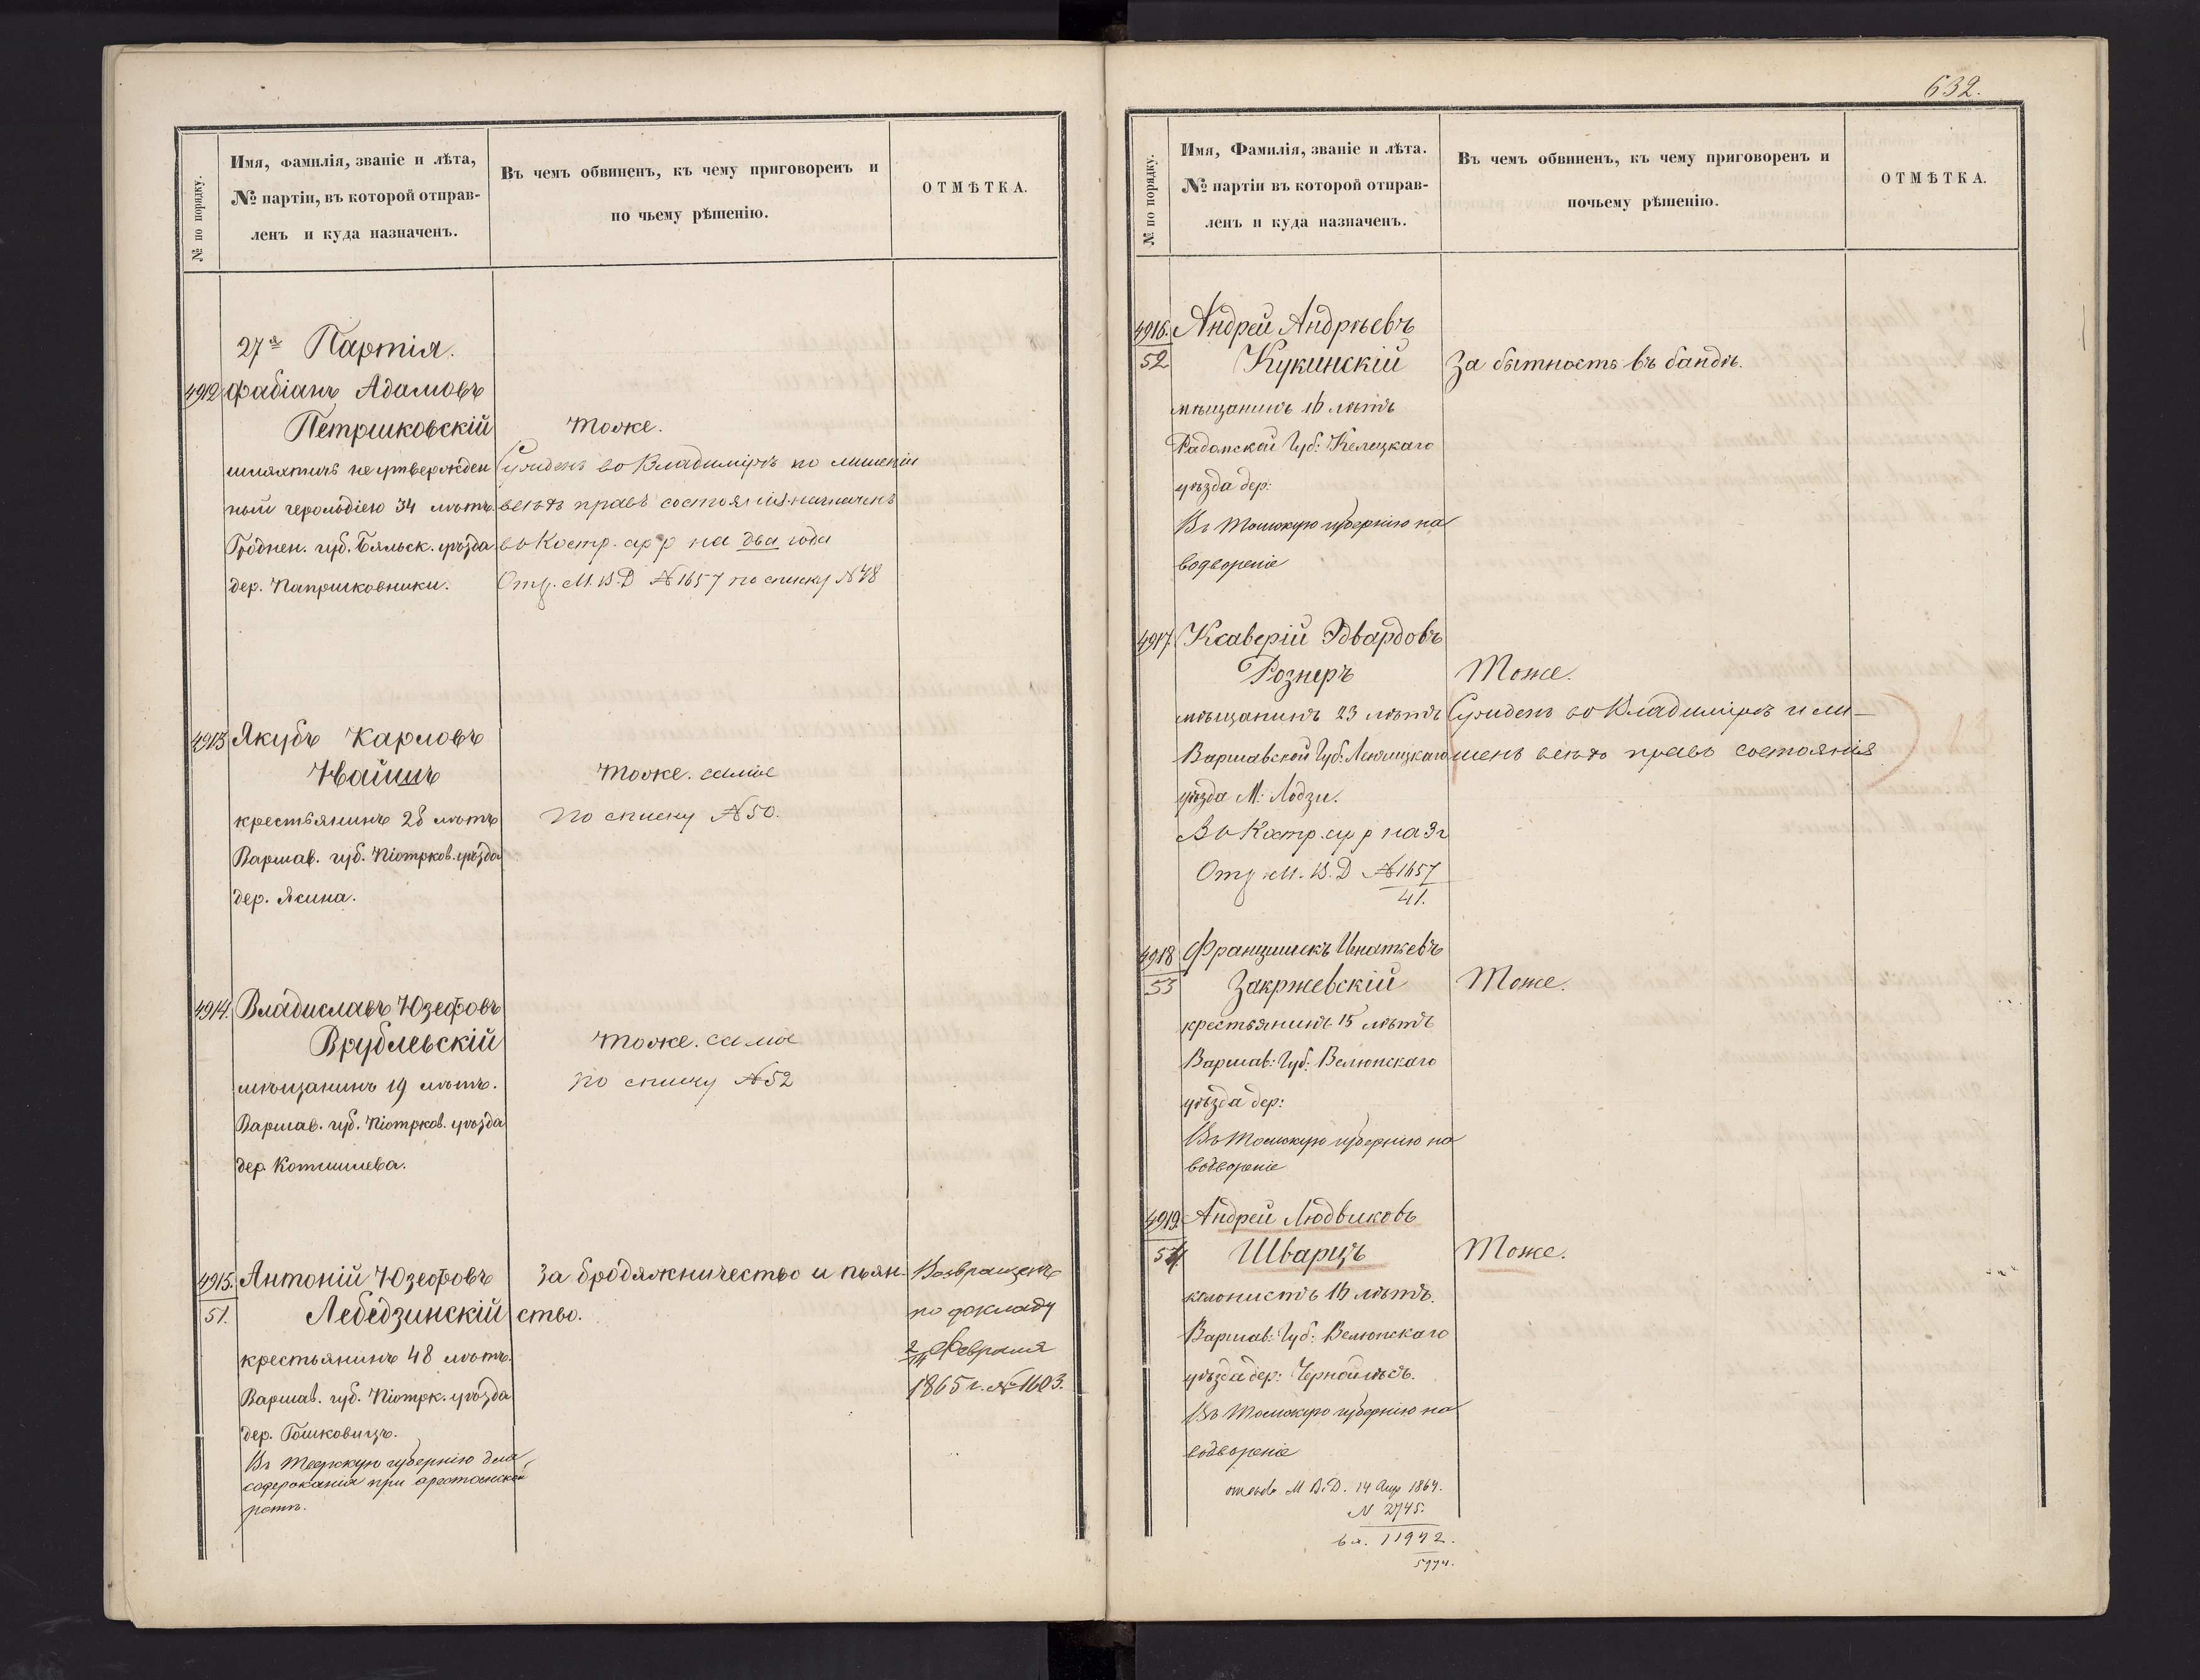 № по порядку.
Имя, фамилія, званіе и лѣта,
№ партіи, въ которой отправ-
ленъ и куда назначенъ.
Въ чемъ обвиненъ, къ чему приговоренъ и
по чьему рѣшенію.
ОТМѢТКА.
27я Партія.
4912 Фабіанъ Адамовъ
Петришковскій
тоже.
шляхтичъ не утвержден
Сужденъ во Владимірѣ по лишеніи
ный герольдіею 34 лѣтъ.
всѣхъ правъ состоянія назначенъ
Гроднен. губ. Бяльск. уѣзда
въ Костр. ар р на два года
дер. Папришковники.
Отз. М. В. Д №1657 по списку №48
4913 Якубъ Карловъ
Найшъ
тоже. самое
крестьянинъ 28 лѣтъ
по списку №50.
Варшав. губ. Піотрков. уѣзда
дер. Ясина.
4914. Владиславъ Юзефовъ
Врублевскій
тоже. самое
мѣщанинъ 19 лѣтъ.
по списку №52
Варшав. губ. Піотрков. уѣзда
дер. Котишлева.
4915. Антоній Юзефовъ
за бродяжничество и пьян-
Возвращенъ
51. Лебедзинскій
ство.
по докладу
крестьянинъ 48 лѣтъ.
2/14 Февраля
Варшав. губ. Піотрк. уѣзда
1865 г. №1603.
дер. Гошковицъ.
Въ Тверскую губернію для
содержанія при арестанской
ротѣ.
632.
№ по порядку.
Имя, Фамилія, званіе и лѣта.
№ партіи въ которой отправ-
ленъ и куда назначенъ.
Въ чемъ обвиненъ, къ чему приговоренъ и
почьему рѣшенію.
ОТМѢТКА.
4916. Андрей Андрѣевъ
52 Кукинскій
За бытность въ бандѣ.
мѣщанинъ 16 лѣтъ
Радомской Губ: Келецкаго
уѣзда дер:
Въ Томскую губернію на
водвореніе
4917. Ксаверій Эдвардовъ
Рознеръ
Тоже.
мѣщанинъ 23 лѣтъ
Сужденъ во Владимірѣ и ли-
Варшавской Губ: Ленчицкаго
шенъ всѣхъ правъ состоянія
уѣзда М: Лодзи.
Въ Костр. ар р на 3 г
Отз М. В. Д №1657
41.
4918 Францишекъ Игнатьевъ
53 Закржевскій
Тоже.
крестьянинъ 15 лѣтъ
Варшав: Губ: Велюнскаго
уѣзда дер:
Въ Томскую губернію на
водвореніе
4919. Андрей Людвиковъ
54 Шварцъ
Тоже.
колонистъ 16 лѣтъ.
Варшав: Губ: Велюнскаго
уѣзда дер: Чернойлѣсъ.
Въ Томскую губернію на
водвореніе
М В. Д. 14 Апр 1864.
N 2745.
вх. 11942.
5974.